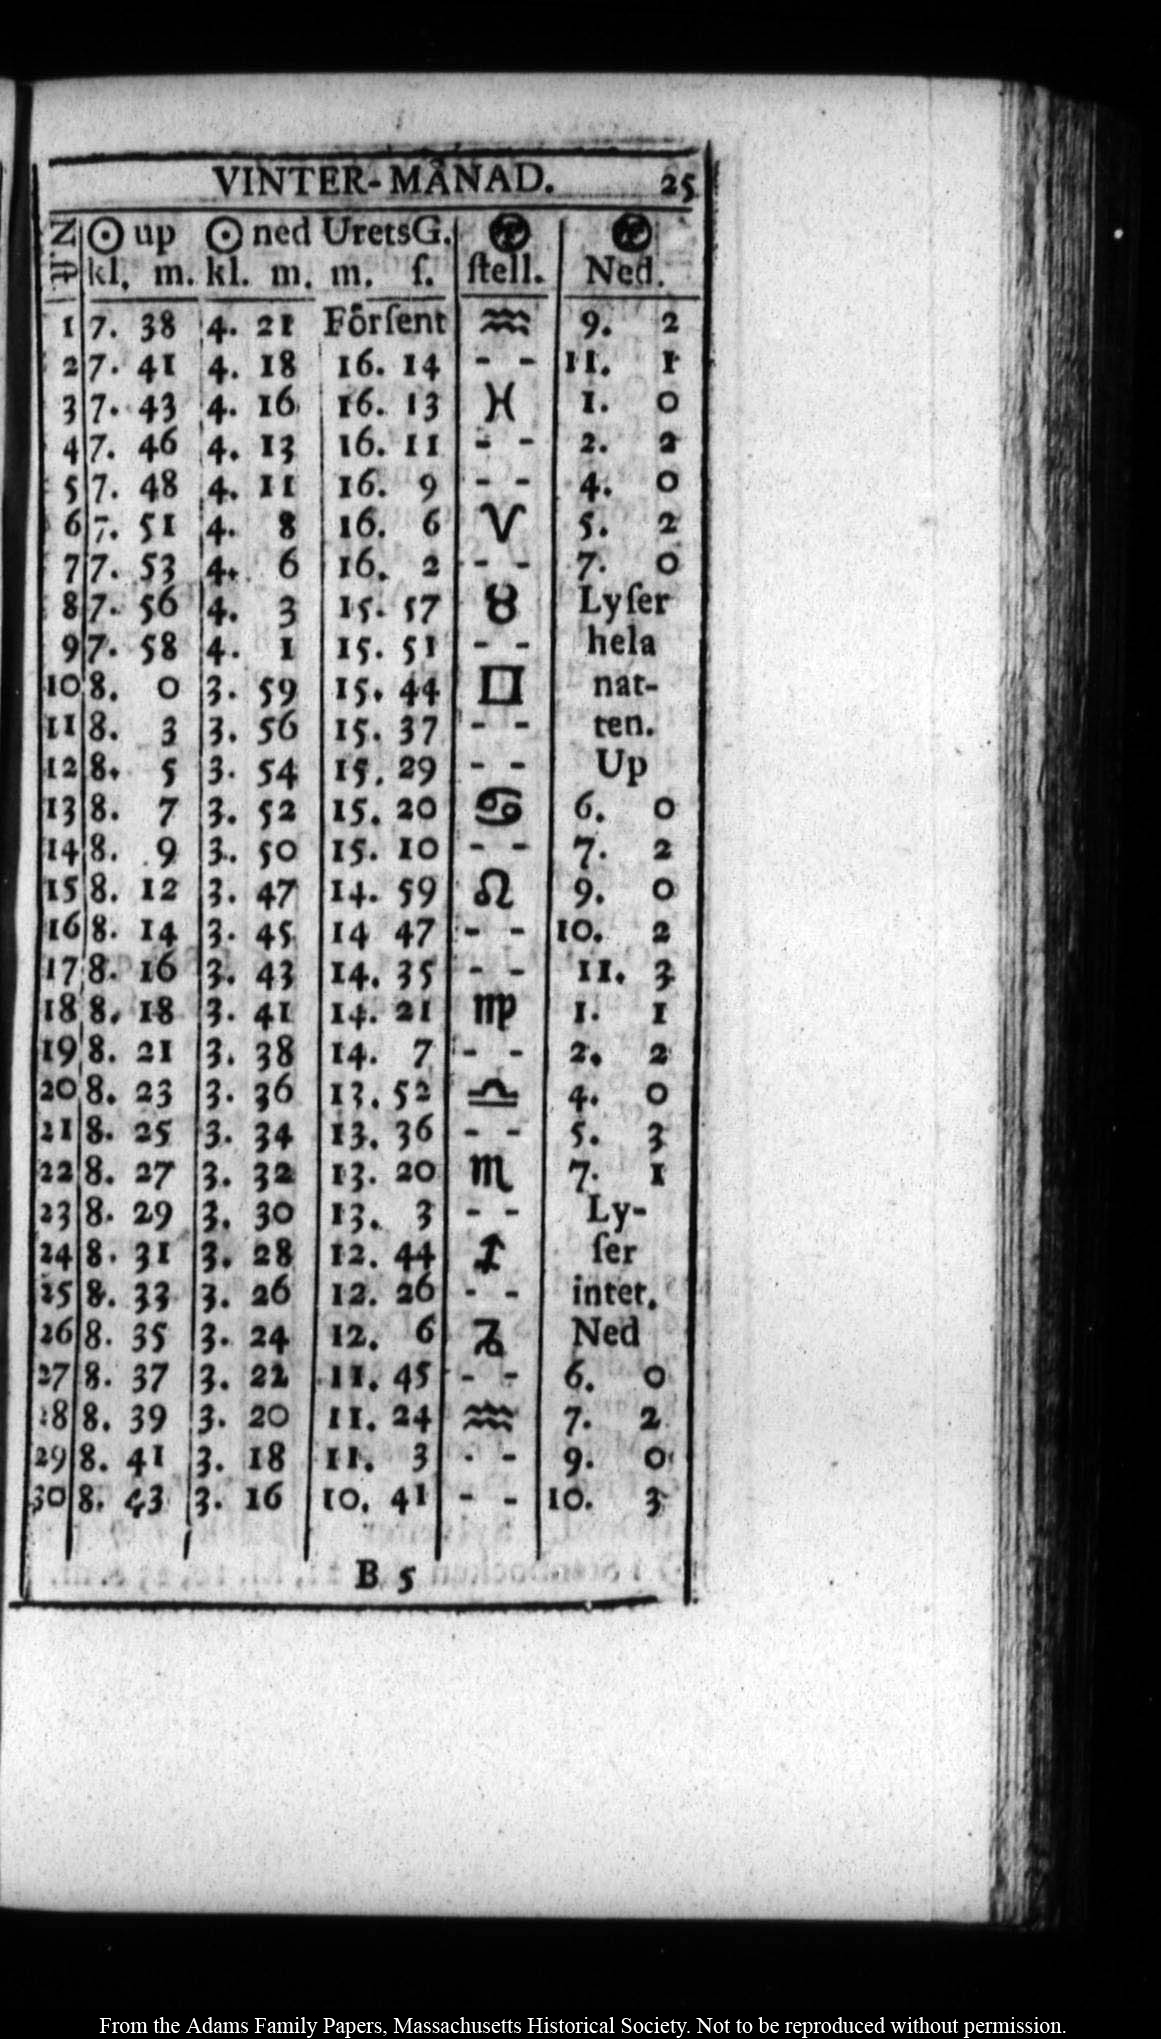 VINTER-MÅNAD. 25
N. ☉ up ☉ ned UretsG.
kl. m. kl. m. m. ſ. ſtell. Ned.
1 7. 38 4. 21 Förſent ♒ 9. 2
2 7. 41 4. 18 16. 14 - - 11. 1
3 7. 43 4. 16 16. 13 ♓ 1. 0
4 7. 46 4. 13 16. 11 - - 2. 2
5 7. 48 4. 11 16. 9 - - 4. 0
6 7. 51 4. 8 16. 6 ♈ 5. 2
7 7. 53 4. 6 16. 2 - - 7. 0
8 7. 56 4. 3 15. 57 ♉ Lyſer
9 7. 58 4. 1 15. 51 - - hela
10 8. 0 3. 59 15. 44 ♊ nat-
11 8. 3 3. 56 15. 37 - - ten.
12 8. 5 3. 54 15. 29 - - Up
13 8. 7 3. 52 15. 20 ♋ 6. 0
14 8. 9 3. 50 15. 10 - - 7. 2
15 8. 12 3. 47 14. 59 ♌ 9. 0
16 8. 14 3. 45 14 47 - - 10. 2
17 8. 16 3. 43 14. 35 - - 11. 3
18 8. 18 3. 41 14. 21 ♍ 1. 1
19 8. 21 3. 38 14. 7 - - 2. 2
20 8. 23 3. 36 13. 52 ♎ 4. 0
21 8. 25 3. 34 13. 36 - - 5. 3
22 8. 27 3. 32 13. 20 ♏ 7. 1
23 8. 29 3. 30 13. 3 - - Ly-
24 8. 31 3. 28 12. 44 ♐ ſer
25 8. 33 3. 26 12. 26 - - intet.
26 8. 35 3. 24 12. 6 ♑ Ned
27 8. 37 3. 22 11. 45 - - 6. 0
28 8. 39 3. 20 11. 24 ♒ 7. 2
29 8. 41 3. 18 11. 3 - - 9. 0
30 8. 43 3. 16 10. 41 - - 10. 3
B 5
From the Adams Family Papers, Massachusetts Historical Society. Not to be reproduced without permission.